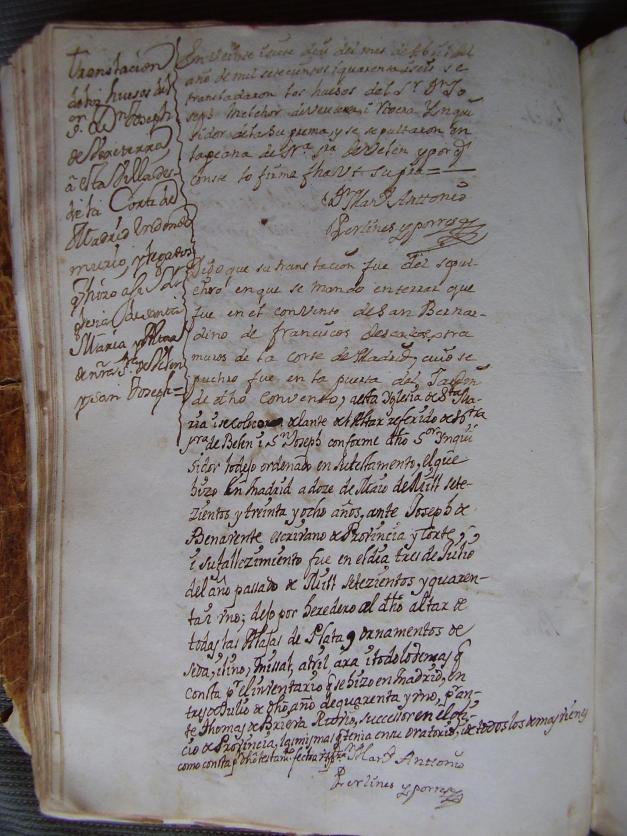 Translacion
de los huesos del
Sr. Dn. Joseph
de
a esta Villa des-
de la Corte de
Madrid en donde
murio, y legados
q hizo a la
glesia de Santa
Maria y Altar
de nra Sra. de Belen
y San Joseph=
En veinte i siete dias del mes de del
año de mil setecientos i quarenta i seis se
transladaron los huesos del Sr. Dn. Jo
seph Melchor de i Ynqui
sidor de la Suprema, y se sepultaron en
la peana de Nra. Sra de Velen, y por q
conste lo firme fha Vt supra=
Dr. Mart. Anttonio
Perlines y porres
Digo que su translacion fue del sepul-
chro, en que se mando enterrar que
fue en el convento de San Bernar-
dino de franciscos descalzos, extra
muros de la corte de Madrid, cuio se
pulchro fue en la puerta del Jardin
de dho convento, a esta Yglesia de Sta Ma-
ria i se coloco delante del Altar referido de Nostra
sra de Belen i Sn Joseph conforme dho Sor Ynqui
sidor lo dejo ordenado en su testamento, el que
hizo en Madrid a doze de Maio de Mill sete-
zientos y treinta y ocho años, ante Joseph de
Benavente escrivano de Provincia y Corte,
i su fallezimiento fue en el dia tres de Julio
del año passado de Mill setezientos y quaren-
ta y uno; dejo por heredero al dho altar de
todas las Alajas de Plata, y ornamentos de
seda, i lino, missal, atril ara i todo lo demas q
consta pr el inventario q se hizo en Madrid, en
tres de Julio de dho año de quarenta y uno, p. an-
te Thomas de Briera successor en el ofi-
cio de Provincia, las mismas q tenia en su oratorio, de todos los demas
como consta de dho testamto. fecha
Mart. Anttonio
Perlines y porres